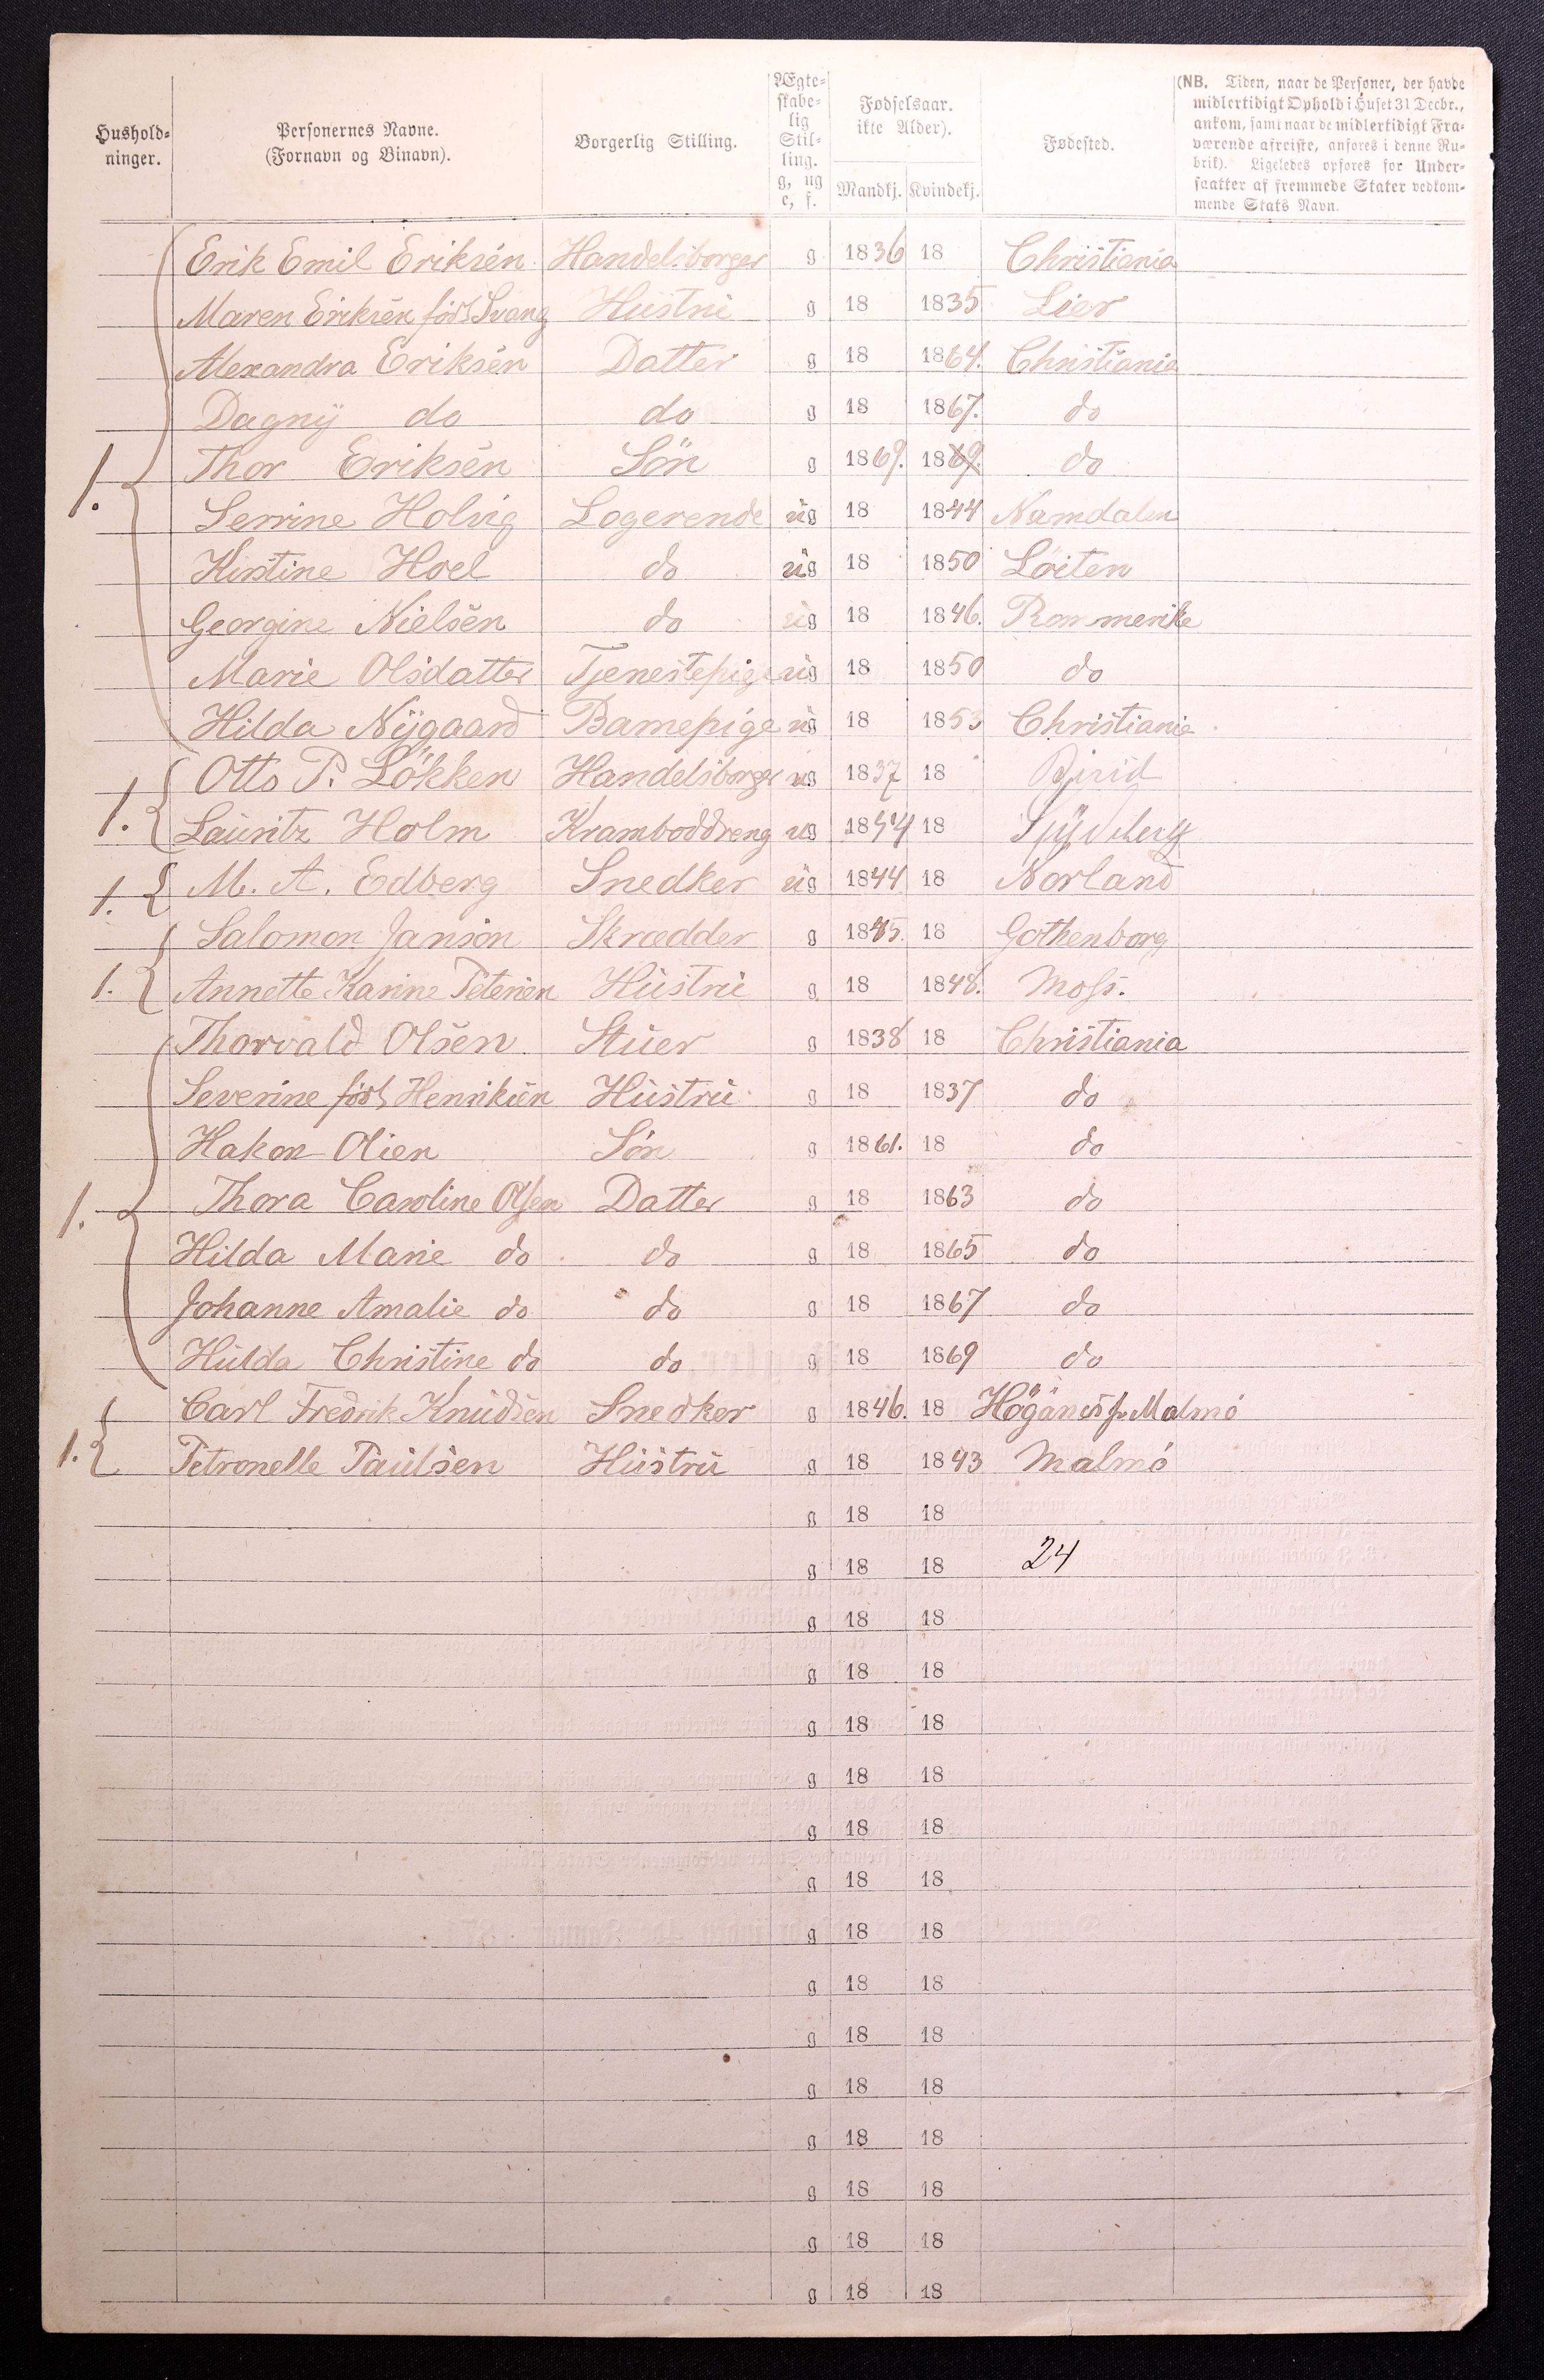 Hushold-
ninger.
Personernes Navne.
(Fornavn og Binavn).
Borgerlig Stilling.
Ægte-
skabe-
lig
Stil-
ling.
g, ug
e, f.
Fødselsaar.
ikte Alder).
Mandkj. Kvindekj.
Fødested.
(NB. Tiden, naar de Personer, der havde
midlertidigt Ophold i Huset 31 Decbr.,
ankom, samt naar de midlertidigt Fra-
værende afreiste, anføres i denne Ru-
brik). Ligeledes opføres for Under-
saatter af fremmede Stater vedkom-
mende Stats Navn.
Erik Emil Eriksen Handelsborger g 1836 18 Christiania
Maren Eriksen født Svang Hustru g 18 1835 Lier
Alexandra Eriksen Datter g 18 1864. Christiania
Dagny do do g 18 1867. do
1. Thor Eriksen Søn g 1869. 1869. do
Serrine Holvig Logerende ug 18 1844 Namdalen
Kirstine Hoel do ug 18 1850 Løiten
Georgine Nielsen do ug 18 1846. Rommerike
Marie Olsdatter Tjenestepige ug 18 1850 do
Hilda Nygaard Barnepige ug 18 1853 Christiania
1. Otto P. Løkken Handelsborger ug 1837 18 Birid
Lauritz Holm Kramboddreng ug 1854 18
1. M. A. Edberg Snedker ug 1844 18 Norland
Salomon Janson Skrædder g 1845. 18 Gothenborg
1. Annette Karine Petersen Hustru g 18 1848. Moss.
Thorvald Olsen Stuer g 1838 18 Christiania
Severine født Henriksen Hustru g 18 1837 do
Hakon Olsen Søn g 1861. 18 do
1. Thora Caroline Olsen Datter g 18 1863 do
Hilda Marie do do g 18 1865 do
Johanne Amalie do do g 18 1867 do
Hulda Christine do do g 18 1869 do
1. Carl Fredrik Knudsen Snedker g 1846. 18 Høganes pr Malmø
Petronelle Paulsen Hustru g 18 1843 Malmø
g 18 18
g 18 18 24
g 18 18
g 18 18
g 18 18
g 18 18
g 18 18
g 18 18
g 18 18
g 18 18
g 18 18
g 18 18
g 18 18
g 18 18
g 18 18
g 18 18